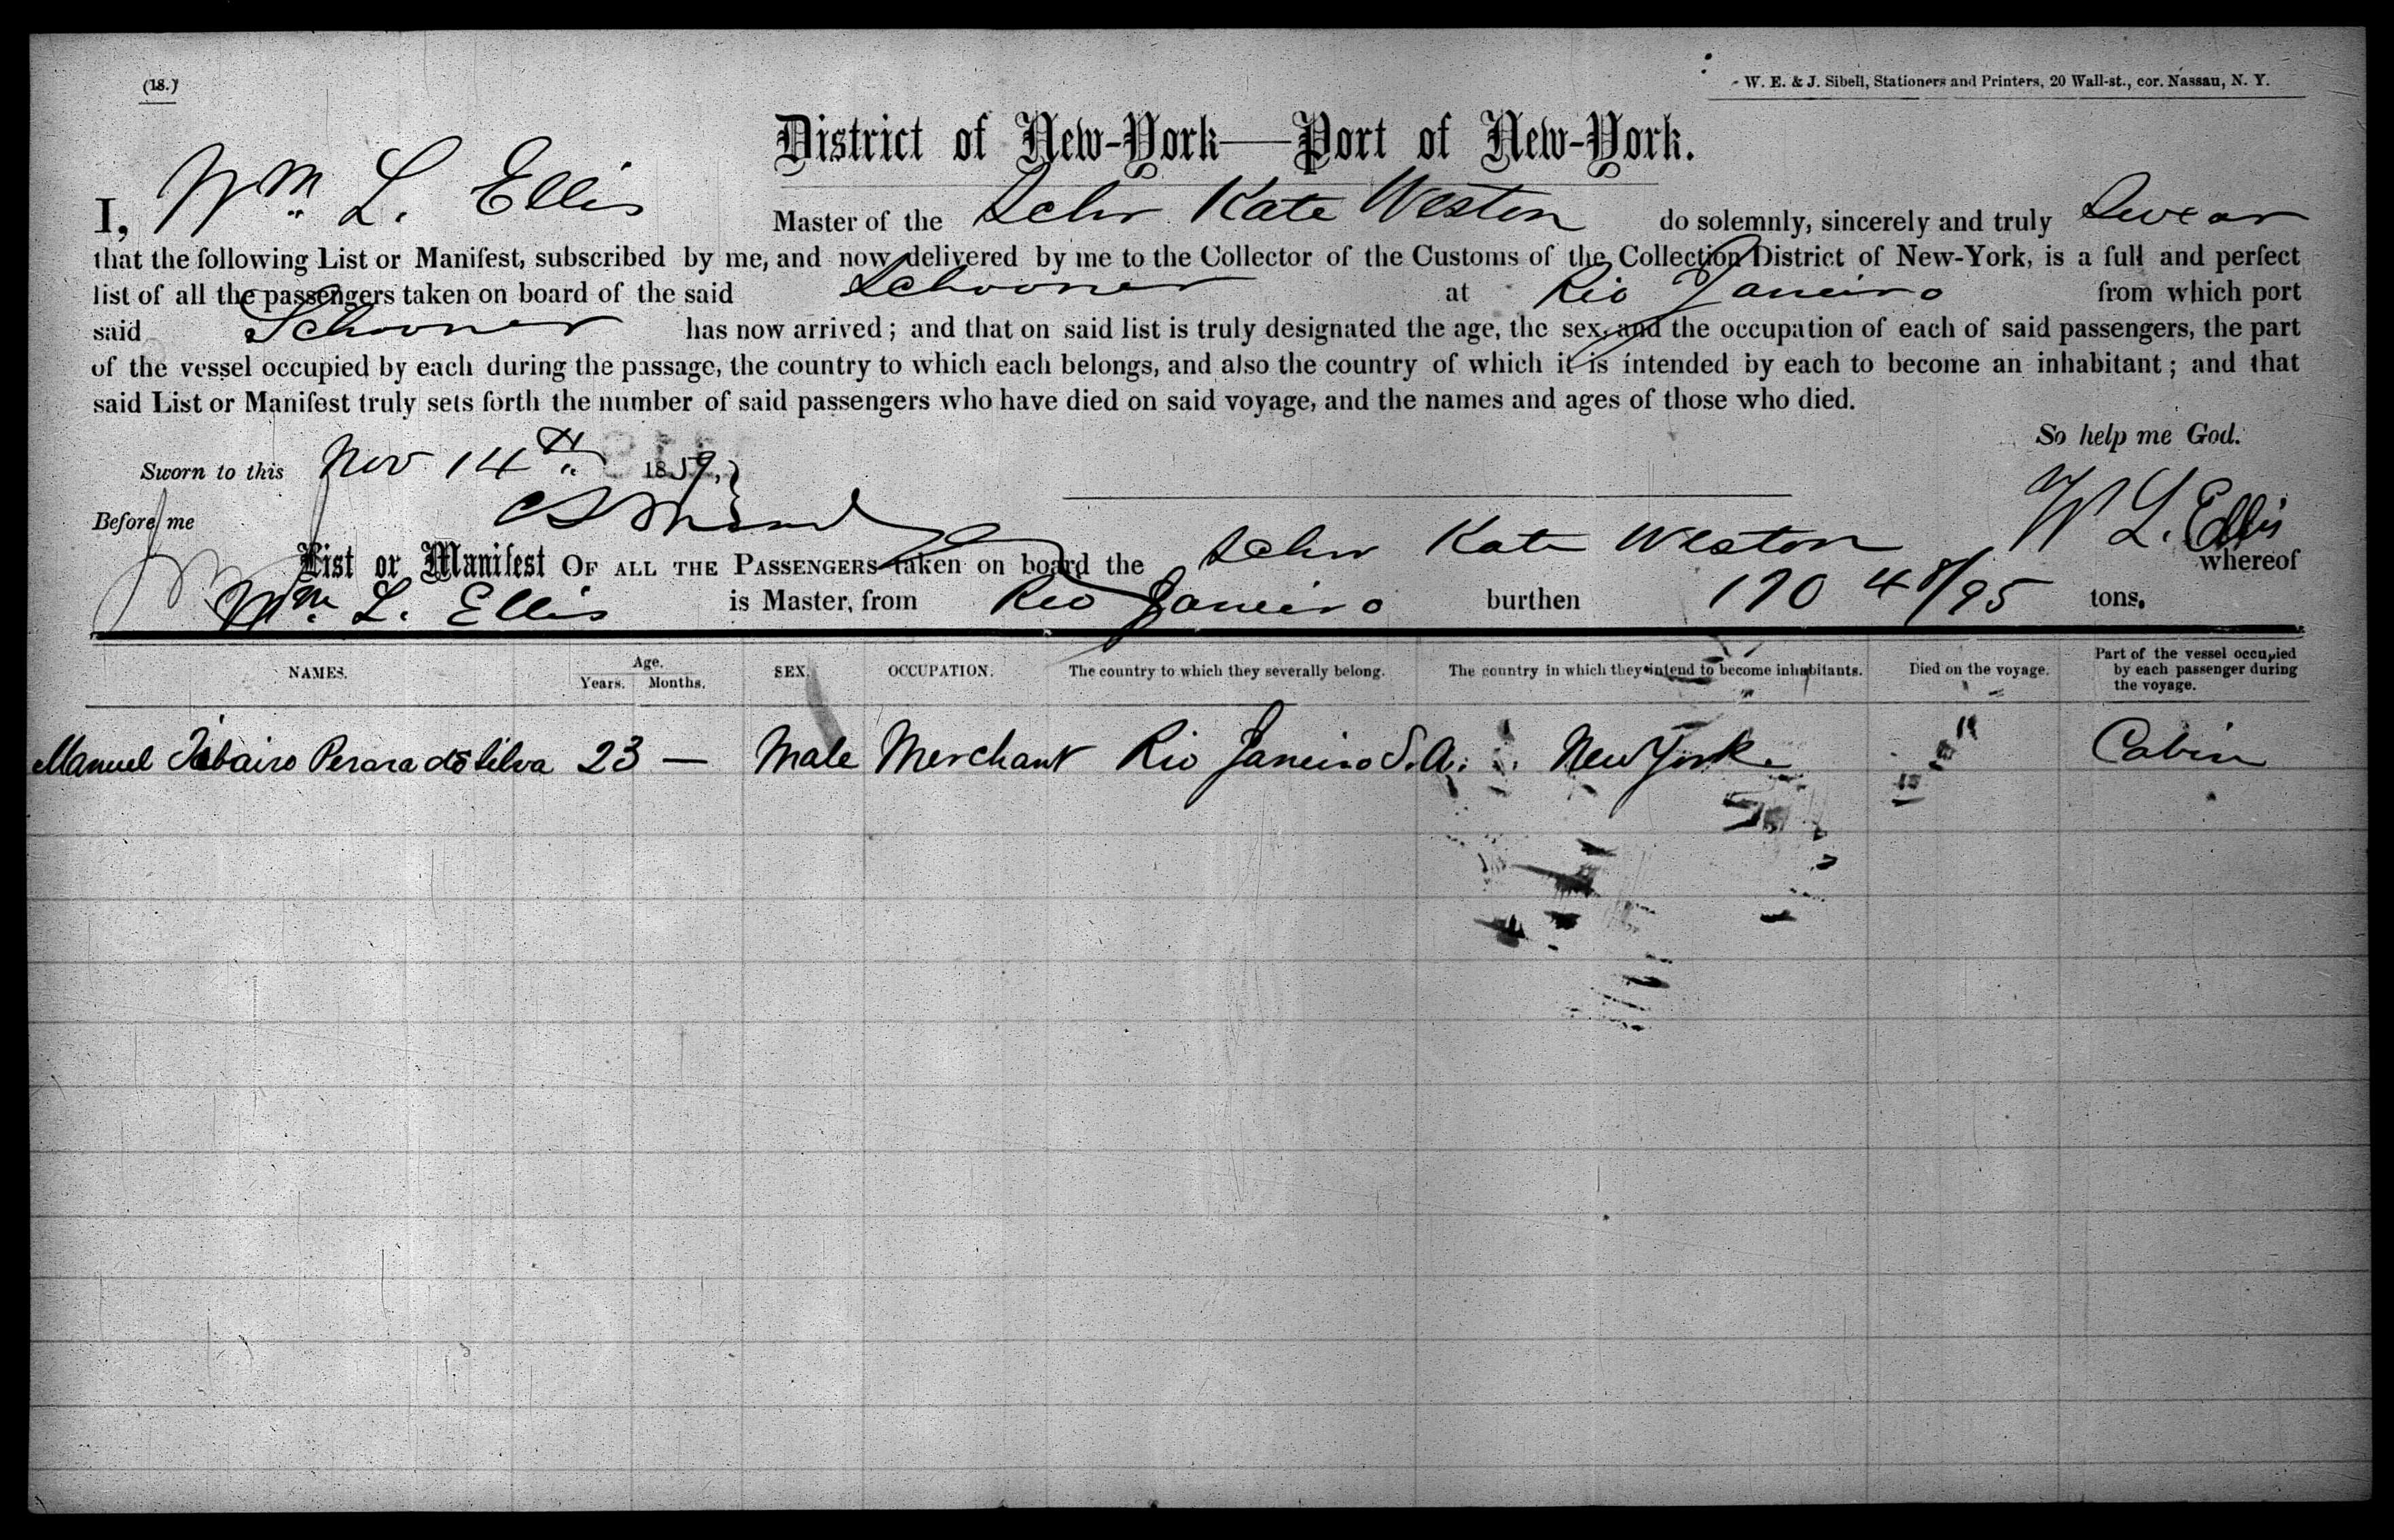 (18.)
W. E. & J. Sibell, Stationers and Printers, 20 Wall-st., cor. Nassau, N. Y.
District of New-York—Port of New-York.
I, Wm L. Ellis Master of the Schr Kate Weston do solemnly, sincerely and truly Swear
that the following List or Manifest, subscribed by me, and now delivered by me to the Collector of the Customs of the Collection District of New-York, is a full and perfect
list of all the passengers taken on board of the said Schooner at Rio Janeiro from which port
said Schooner has now arrived; and that on said list is truly designated the age, the sex, and the occupation of each of said passengers, the part
of the vessel occupied by each during the passage, the country to which each belongs, and also the country of which it is intended by each to become an inhabitant; and that
said List or Manifest truly sets forth the number of said passengers who have died on said voyage, and the names and ages of those who died.
So help me God.
Sworn to this Nov 14th 1859,
W L. Ellis
Before me
List or Manifest OF ALL THE PASSENGERS taken on board the Schr Kate Weston whereof
Wm L. Ellis is Master, from Rio Janeiro burthen 170 48/95 tons.
NAMES. Age. Years. Months. SEX. OCCUPATION. The country to which they severally belong. The country in which they intend to become inhabitants. Died on the voyage. Part of the vessel occupied by each passenger during the voyage.
Manuel Perara da Silva 23 — Male Merchant Rio Janeiro S. A. New York Cabin